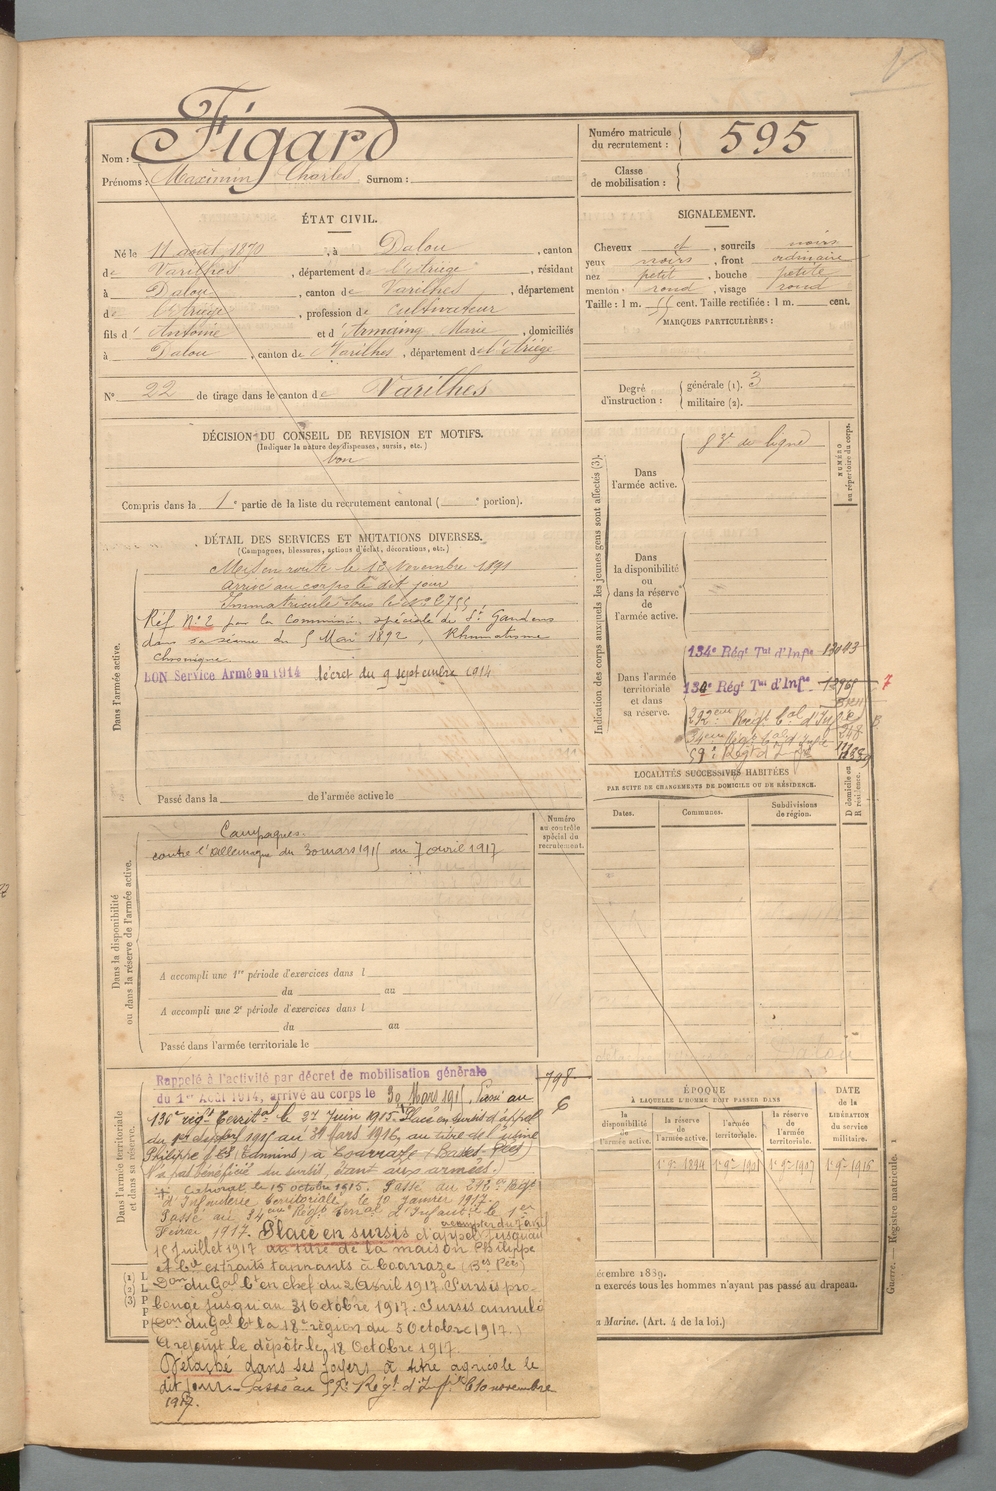 Nom : Figard
Prénoms : Maximin Charles Surnom :
Numéro matricule du recrutement : 595
Classe de mobilisation :
ÉTAT CIVIL.
Né le 11 août 1870, à Dalou, canton
de Varilhes, département de l'Ariège, résidant
à Dalou, canton de Varilhes, département
de l'Ariège, profession de cultivateur
fils d' Antoine et d' Armaing Marie, domiciliés
à Dalou, canton de Varilhes, département de l'Ariège
N° 22 de tirage dans le canton de Varilhes
SIGNALEMENT.
Cheveux et, sourcils noirs
yeux noirs, front ordinaire
nez petit, bouche petite
menton rond, visage rond
Taille : 1 m. 55 cent. Taille rectifiée : 1 m. cent.
MARQUES PARTICULIÈRES :
Degré d'instruction : générale (1). 3
militaire (2).
DÉCISION DU CONSEIL DE REVISION ET MOTIFS.
(Indiquer la nature des dispenses, sursis, etc.)
bon
Compris dans la 1e partie de la liste du recrutement cantonal ( e portion).
DÉTAIL DES SERVICES ET MUTATIONS DIVERSES.
(Campagnes, blessures, actions d'éclat, décorations, etc.)
Dans l'armée active.
Mis en route le 12 novembre 1891
arrivé au corps le dit jour
Immatriculé sous le n°
Réf N° 2 par la Commission spéciale de St Gaudens
dans sa séance du 5 Mai 1892 Rhumatisme
chronique.
BON Service Armé en 1914 décret du 9 septembre 1914
Passé dans la de l'armée active le
Indication des corps auxquels les jeunes gens sont affectés (3).
NUMÉRO au répertoire du corps.
Dans l'armée active.
83e de ligne
Dans la disponibilité ou dans la réserve de l'armée active.
Dans l'armée territoriale et dans sa réserve.
134e Régt Tal d'Infie
134e Régt Tal d'Infie 7
292eme Régt tal d'Infie
34eme Régt tal d'Infie 248
59e Régt d'Infie
LOCALITÉS SUCCESSIVES HABITÉES
PAR SUITE DE CHANGEMENTS DE DOMICILE OU DE RÉSIDENCE.
Dates. Communes. Subdivisions de région. D domicile ou R résidence.
Dans la disponibilité ou dans la réserve de l'armée active.
Numéro au contrôle spécial du recrutement.
Campagnes.
contre l'Allemagne du 30 mars 1915 au 7 avril 1917
A accompli une 1re période d'exercices dans l
du au
A accompli une 2e période d'exercices dans l
du au
Passé dans l'armée territoriale le
Dans l'armée territoriale et dans sa réserve.
798
Rappelé à l'activité par décret de mobilisation générale
du 1er Août 1914, arrivé au corps le 30 Mars 1915. Passé au
136e régt territal le 27 juin 1915. Placé en sursis d'appel
du 1er 1915 au 31 Mars 1916, au titre de l'usine
Philippe et Cie (Tannins) à Coarraze (Basses Pées)
N'a pas bénéficié du sursis, étant aux armées.
Caporal le 15 octobre 1915. Passé au 292eme Régt
d'Infanterie territoriale le 10 janvier 1917.
Passé au 34eme Régt Terral d'Infantie le 1er
Février 1917. Placé en sursis d'appel jusqu'au
15 juillet 1917 au titre de la maison Philippe
et Cie extraits tannants à Coarraze (Bses Pées)
Don du Gal Ct en chef du 2 avril 1917. Sursis pro-
longé jusqu'au 31 Octobre 1917. Sursis annulé
(Don du Gal Ct la 18e région du 5 Octobre 1917.)
A rejoint le dépôt le 18 Octobre 1917.
Détaché dans ses foyers à titre agricole le
dit jour. Passé au 59e Régt d'Infie le 10 novembre
1917.
ÉPOQUE
À LAQUELLE L'HOMME DOIT PASSER DANS
la disponibilité ou la réserve de l'armée active. l'armée territoriale. la réserve de l'armée territoriale.
DATE de la LIBÉRATION du service militaire.
1er 9bre 1894 1er 9bre 1901 1er 9bre 1907 1er 9bre 1916
décembre 1889.
en exercés tous les hommes n'ayant pas passé au drapeau.
a Marine. (Art. 4 de la loi.)
Guerre. — Registre matricule. 1